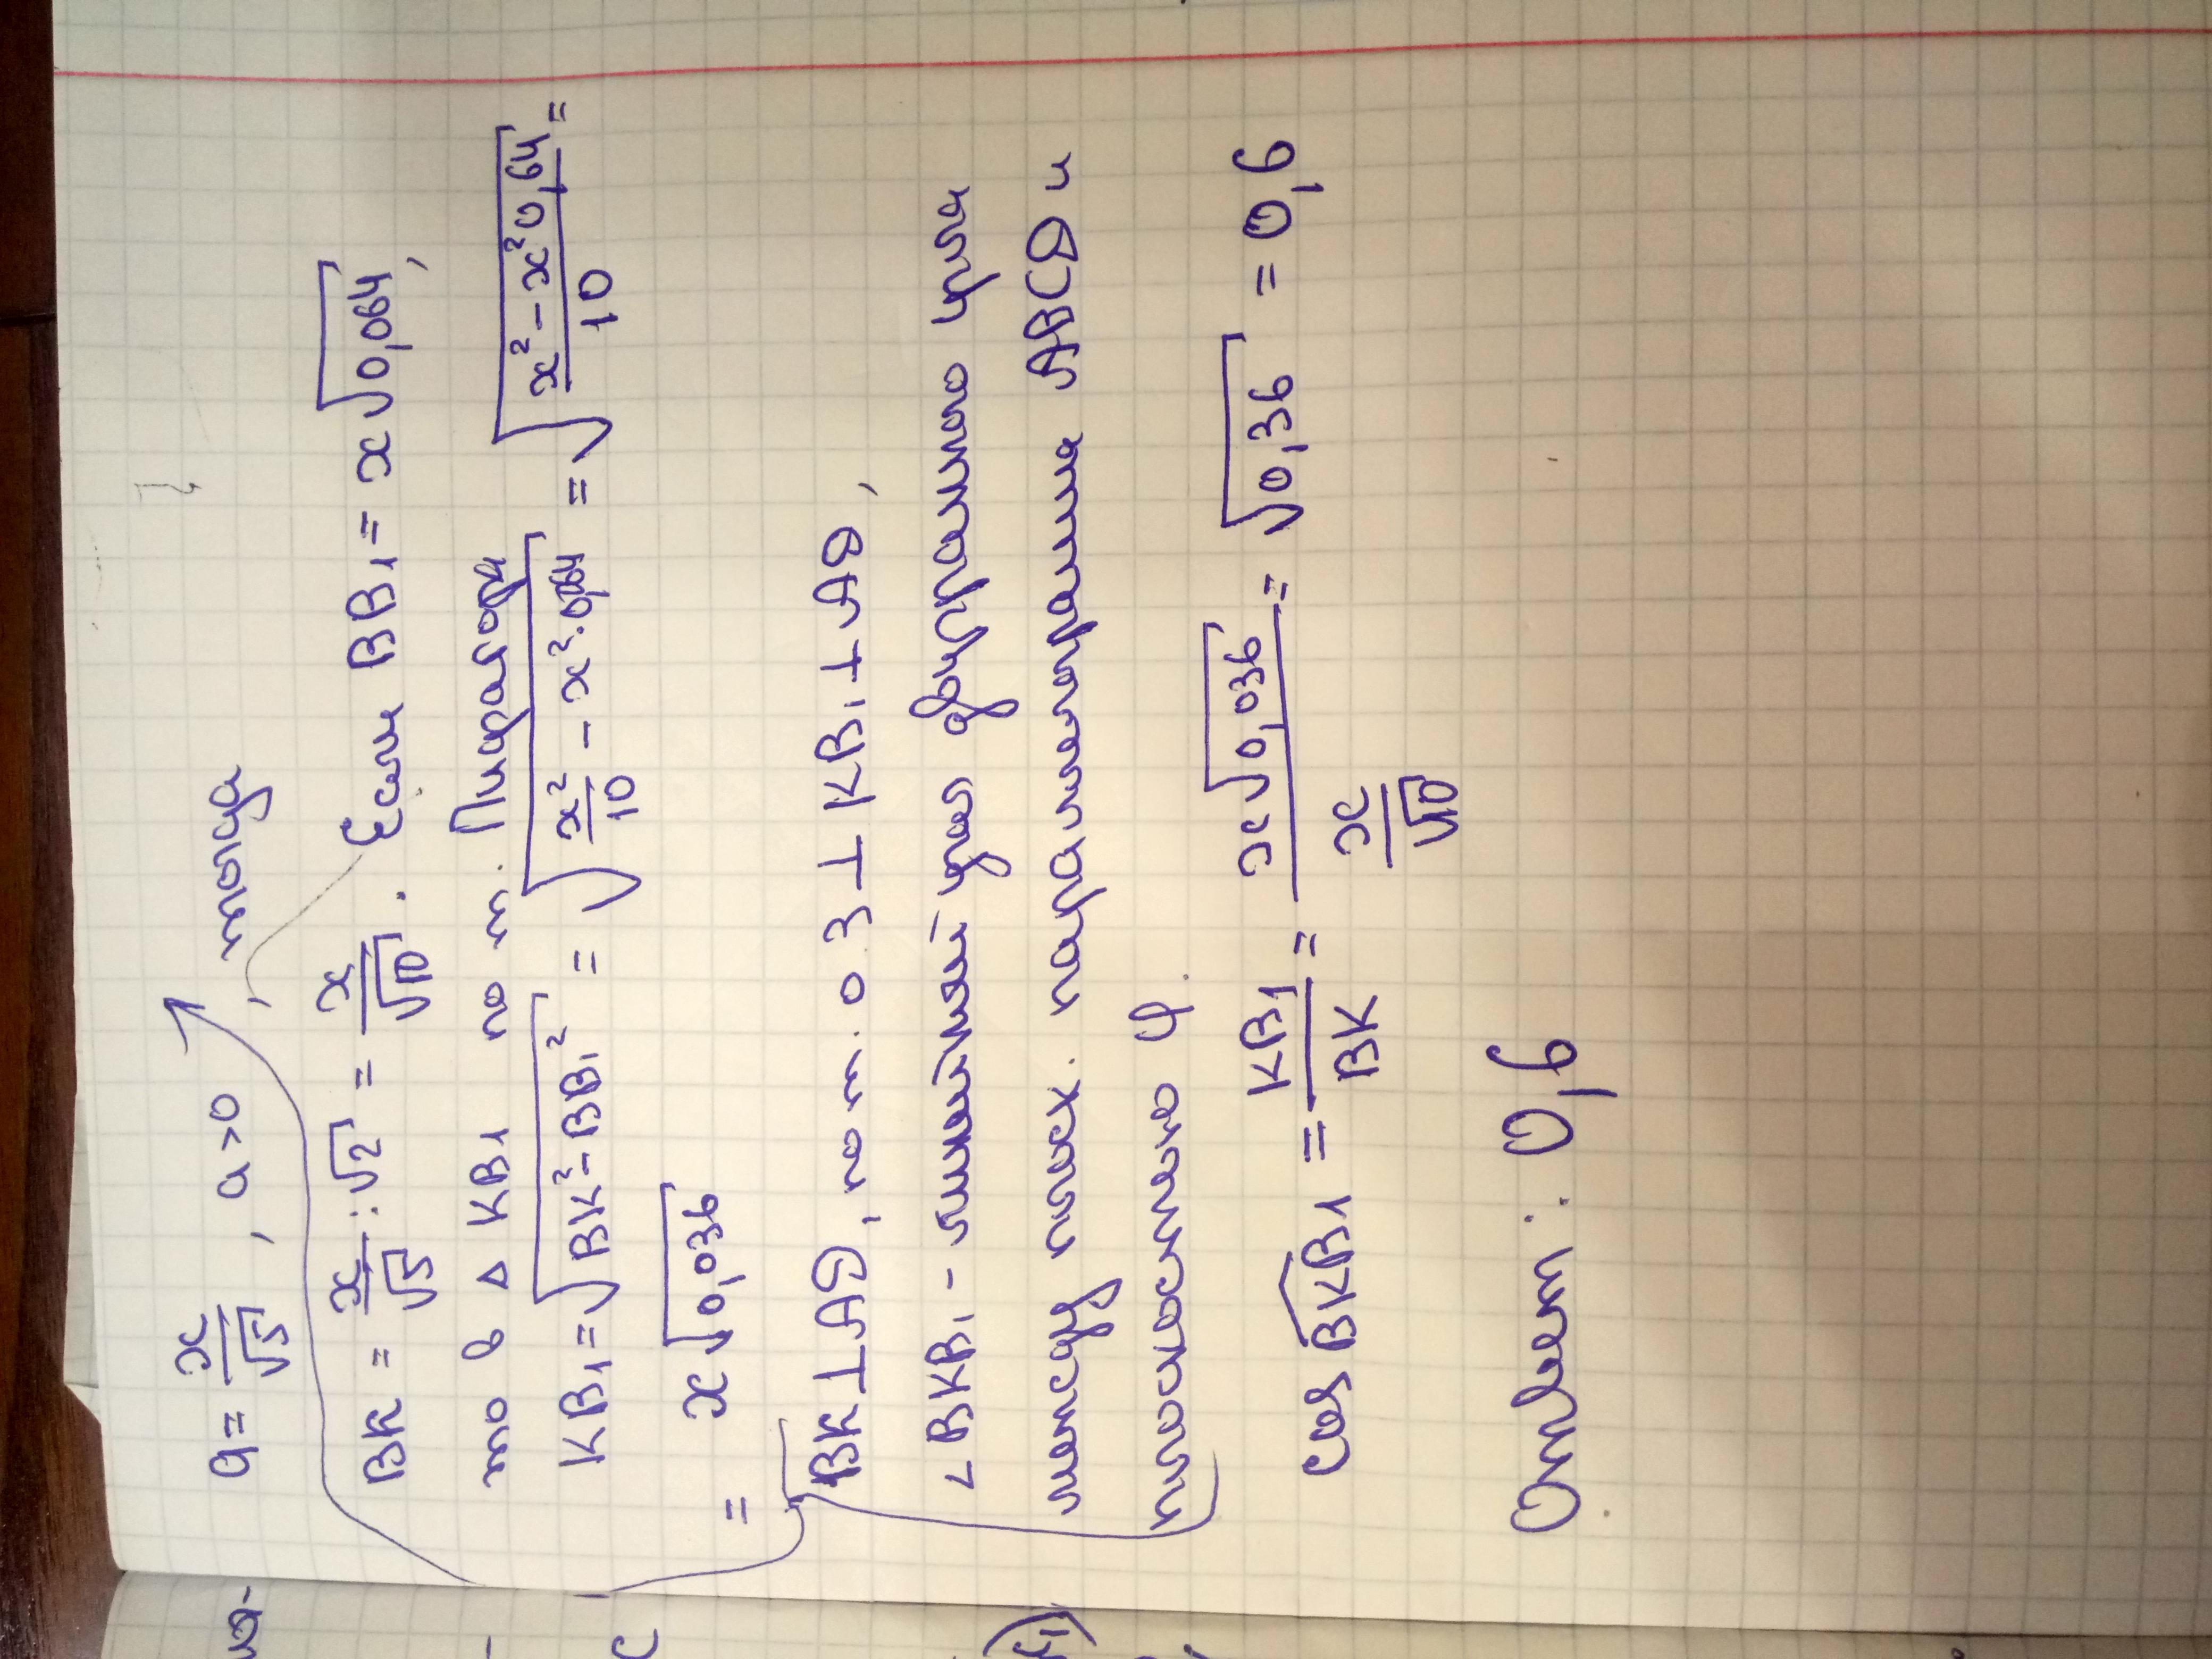 a = x/√5, a>0, тогда
BK = x/√5 : √2 = x/√10. Если BB₁ = x√0,064,
то в △ KBB₁ по т. Пифагора
KB₁ = √(BK² - BB₁²) = √(x²/10 - x²·0,064) = √((x² - x²0,64)/10) =
= x√0,036
BK⊥AD, по т. о 3 ⊥ KB₁⊥AD,
∠BKB₁ - линейный угол двугранного угла
между плоск. параллелограмма ABCD и
плоскостью φ.
cos BKB₁ = KB₁/BK = x√0,036 / (x/√10) = √0,36 = 0,6
Ответ: 0,6